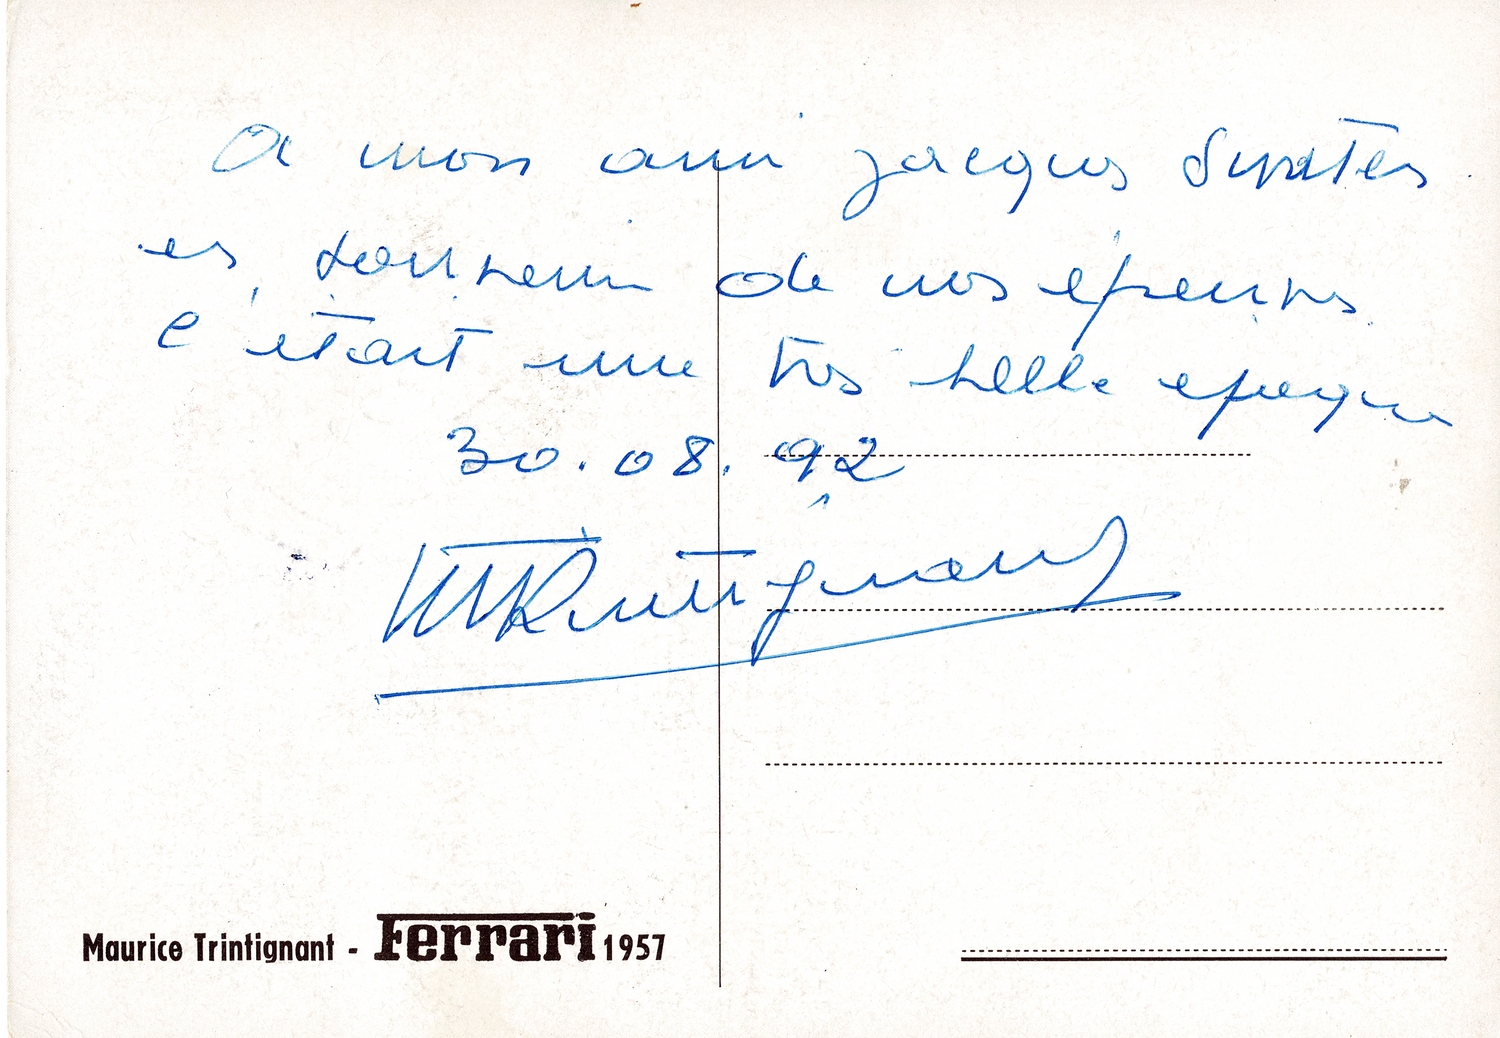 A mon ami Jacques
en souvenir de nos épreuves
C'était une très belle époque
30.08.92
MTrintignant
Maurice Trintignant - Ferrari 1957